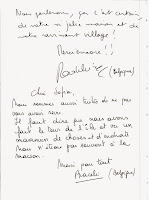 Nous parlerons, ça c'est certain,
de votre si jolie maison et de
votre ravissant village !
Merci encore !!
(Belgique)
Cher
Nous sommes aussi tristes de ne pas
vous avoir revu.
Il faut dire que nous avons
fait le tour de l'île et vu un
maximum de choses et d'endroits
Nous n'étions pas souvent à la
maison.
Merci pour tout
(Belgique)